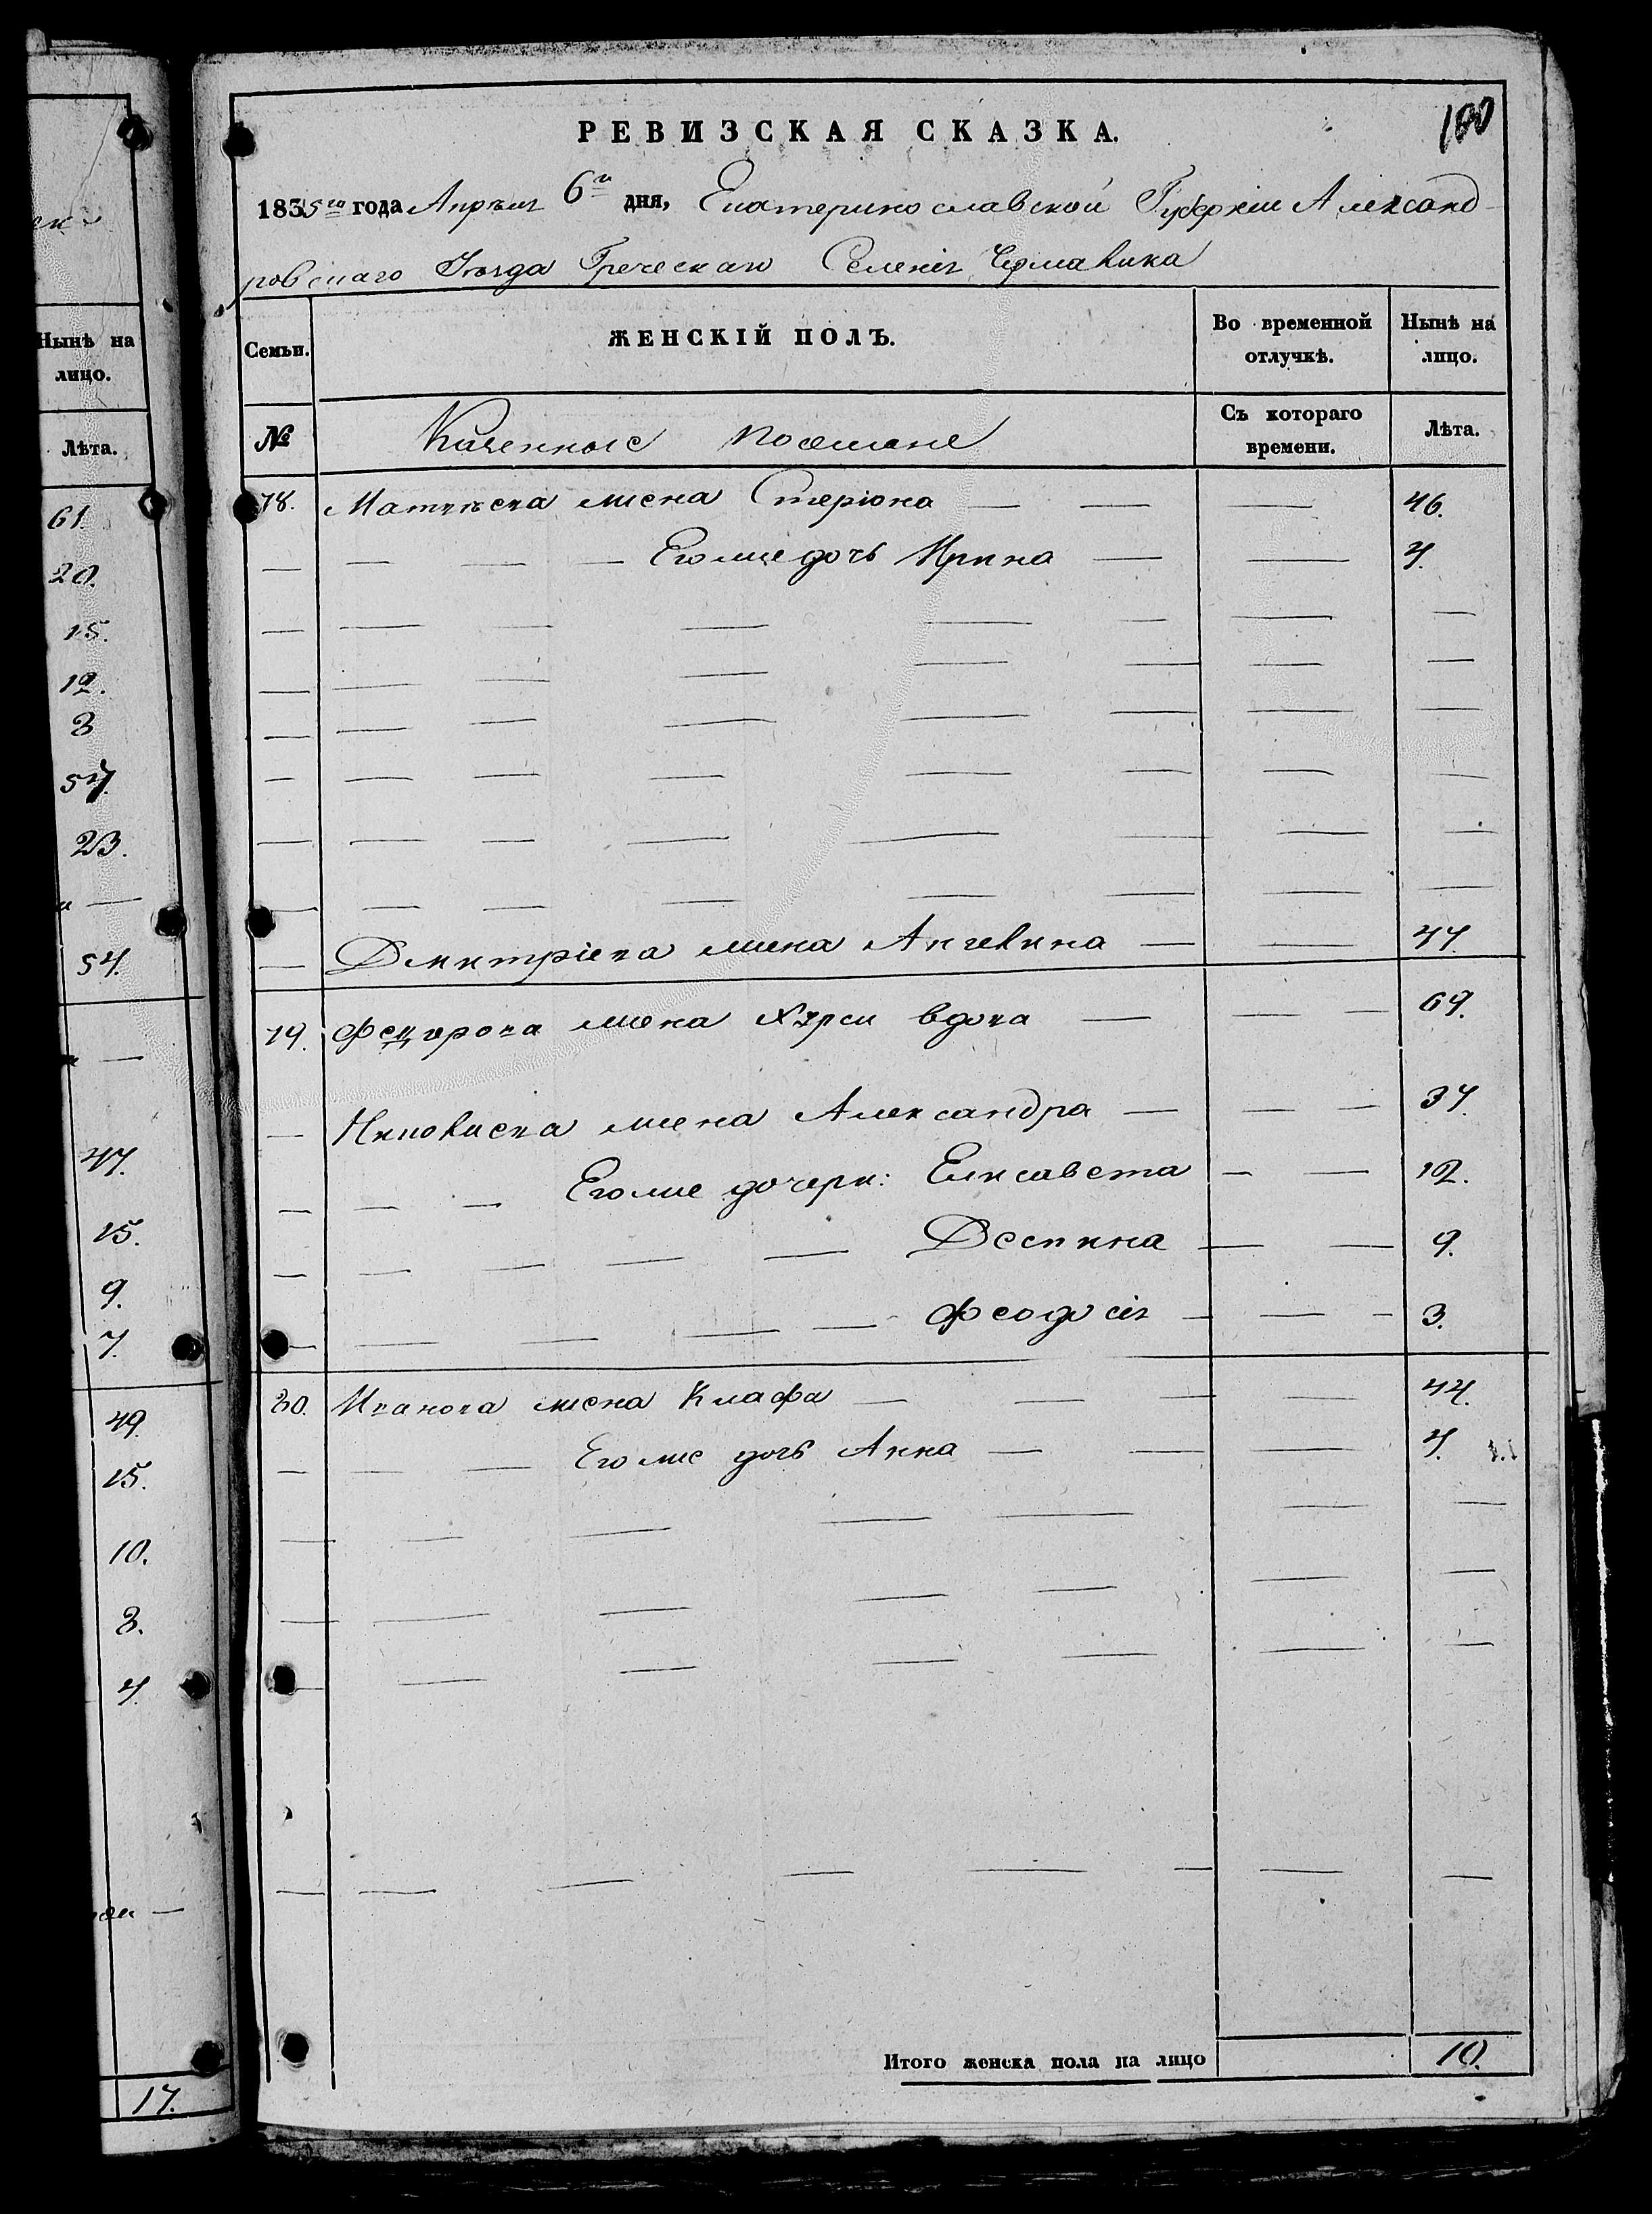 ск
Нынѣ на
лицо.
Лѣта.
61.
20.
15.
12.
8
57.
23.
54.
47.
15.
9.
7.
49.
15.
10.
8.
4.
17.
100
РЕВИЗСКАЯ СКАЗКА.
1835го года Апрѣля 6го дня, Екатеринославской Губерніи Александ-
ровскаго Уѣзда Греческаго Селенія Чермалика
Семьи. ЖЕНСКІЙ ПОЛЪ. Во временной отлучкѣ. Нынѣ на лицо.
№ Казенные поселяне Съ котораго времени. Лѣта.
78. Матвѣева жена Стеріона 46.
Его же дочь Ирина 4.
Дмитріева жена Ангелина 47.
79. Федорова жена Хурси вдова 69.
Николаева жена Александра 37.
Его же дочери: Елисавета 12.
Деспина 9.
Феодосія 3.
80. Иванова жена Клафа 44.
Его же дочь Анна 4.
Итого женска пола на лицо 10.